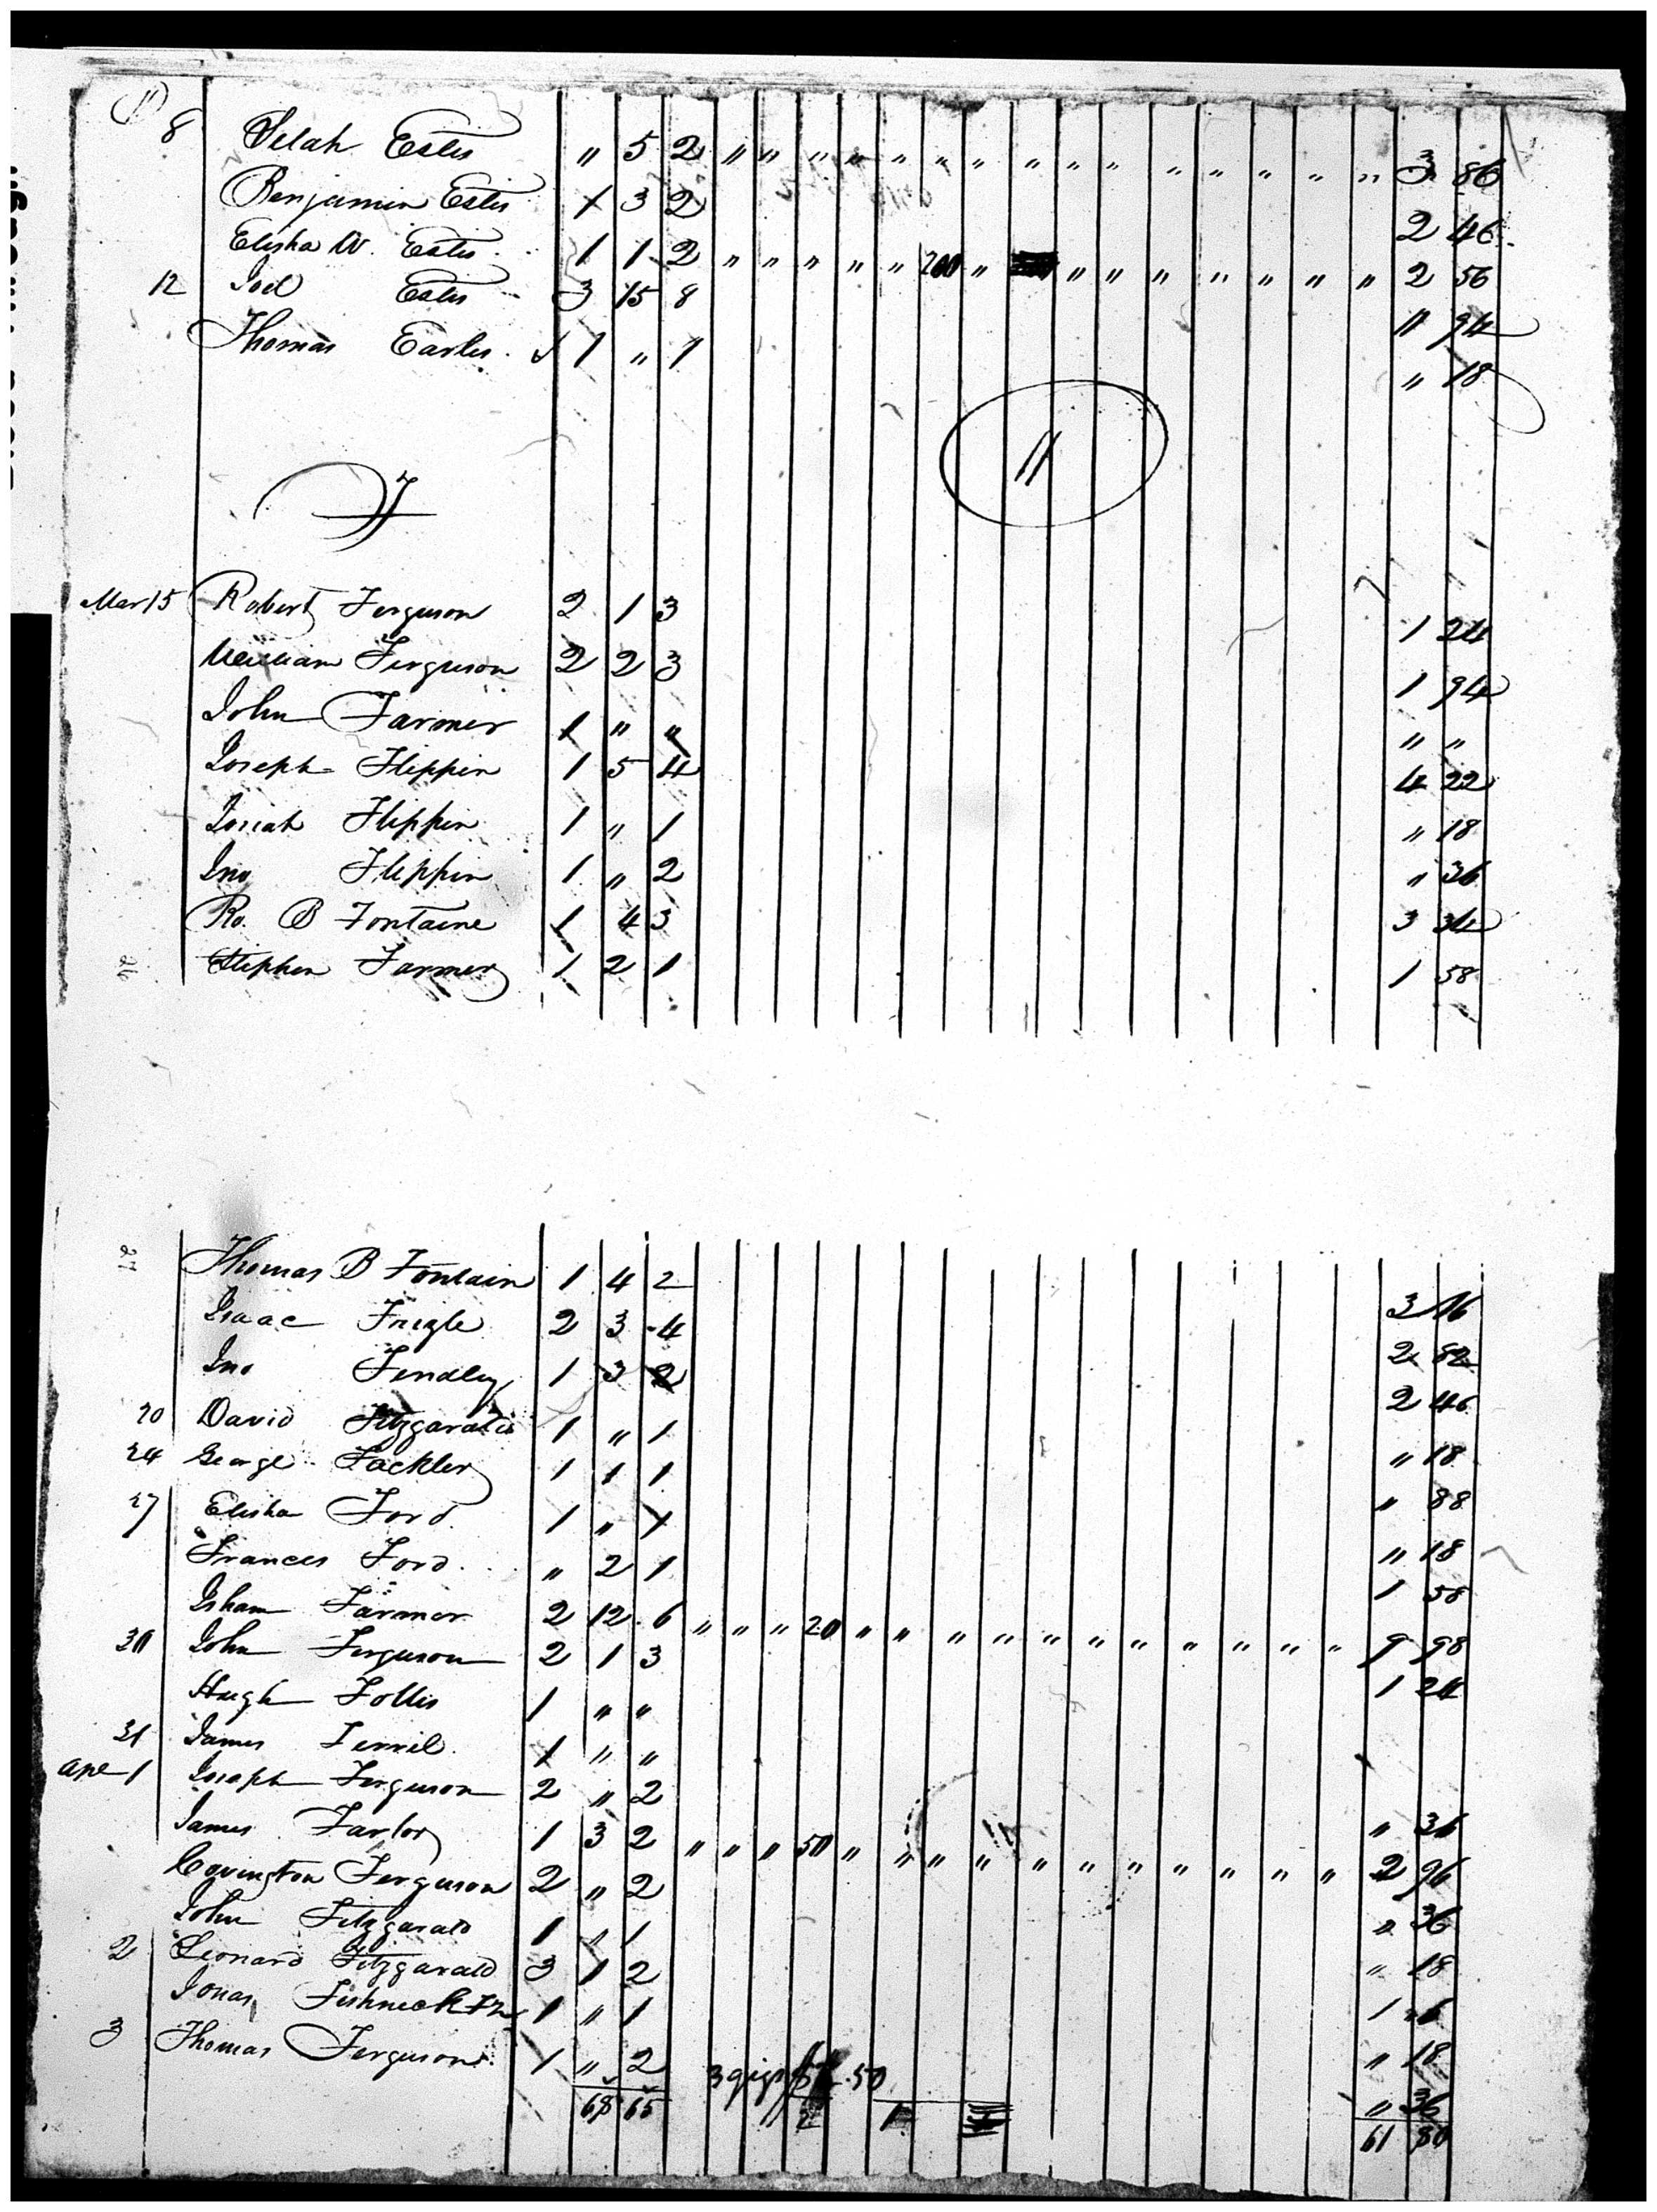 8 Selah Estis " 5 2 " " " " " " " " " " " " " " " 3 86
Benjamin Estis 1 3 2 2 46
Elisha W. Estis 1 1 2 " " " " " 200 " " " " " " " " 2 56
12 Joel Estis 3 15 8 11 94
Thomas Earles 1 " 1 " 18
11
F
Mar 15 Robert Ferguson 2 1 3 1 24
William Ferguson 2 2 3 1 94
John Farmer 1 " " " "
Joseph Flippin 1 5 4 4 22
Josiah Flippin 1 " 1 " 18
Jno Flippin 1 " 2 " 36
Ro. B Fontaine 1 4 3 3 34
Stephen Farmer 1 2 1 1 58
Thomas B Fontain 1 4 2 3 16
Isaac Fnigle 2 3 4 2 82
Jno Findley 1 3 2 2 46
20 David Fitzgarald 1 " 1 " 18
24 George Fackler 1 1 1 " 88
27 Elisha Ford 1 " 1 " 18
Frances Ford " 2 1 1 58
Isham Farmer 2 12 6 " " " 20 " " " " " " " " " " " 9 98
30 John Ferguson 2 1 3 1 24
Hugh Follis 1 " "
31 James Ferril 1 " "
Apl 1 Joseph Ferguson 2 " 2 " 36
James Farlor 1 3 2 " " " 50 " " " " " " " " " " " 2 96
Covington Ferguson 2 " 2 " 36
John Fitzgarald 1 " 1 " 18
2 Leonard Fitzgarald 3 1 2 1 06
Jonas 1 " 1 " 18
3 Thomas Ferguson 1 " 2 " 36
68 65 3 gigs 50 61 80